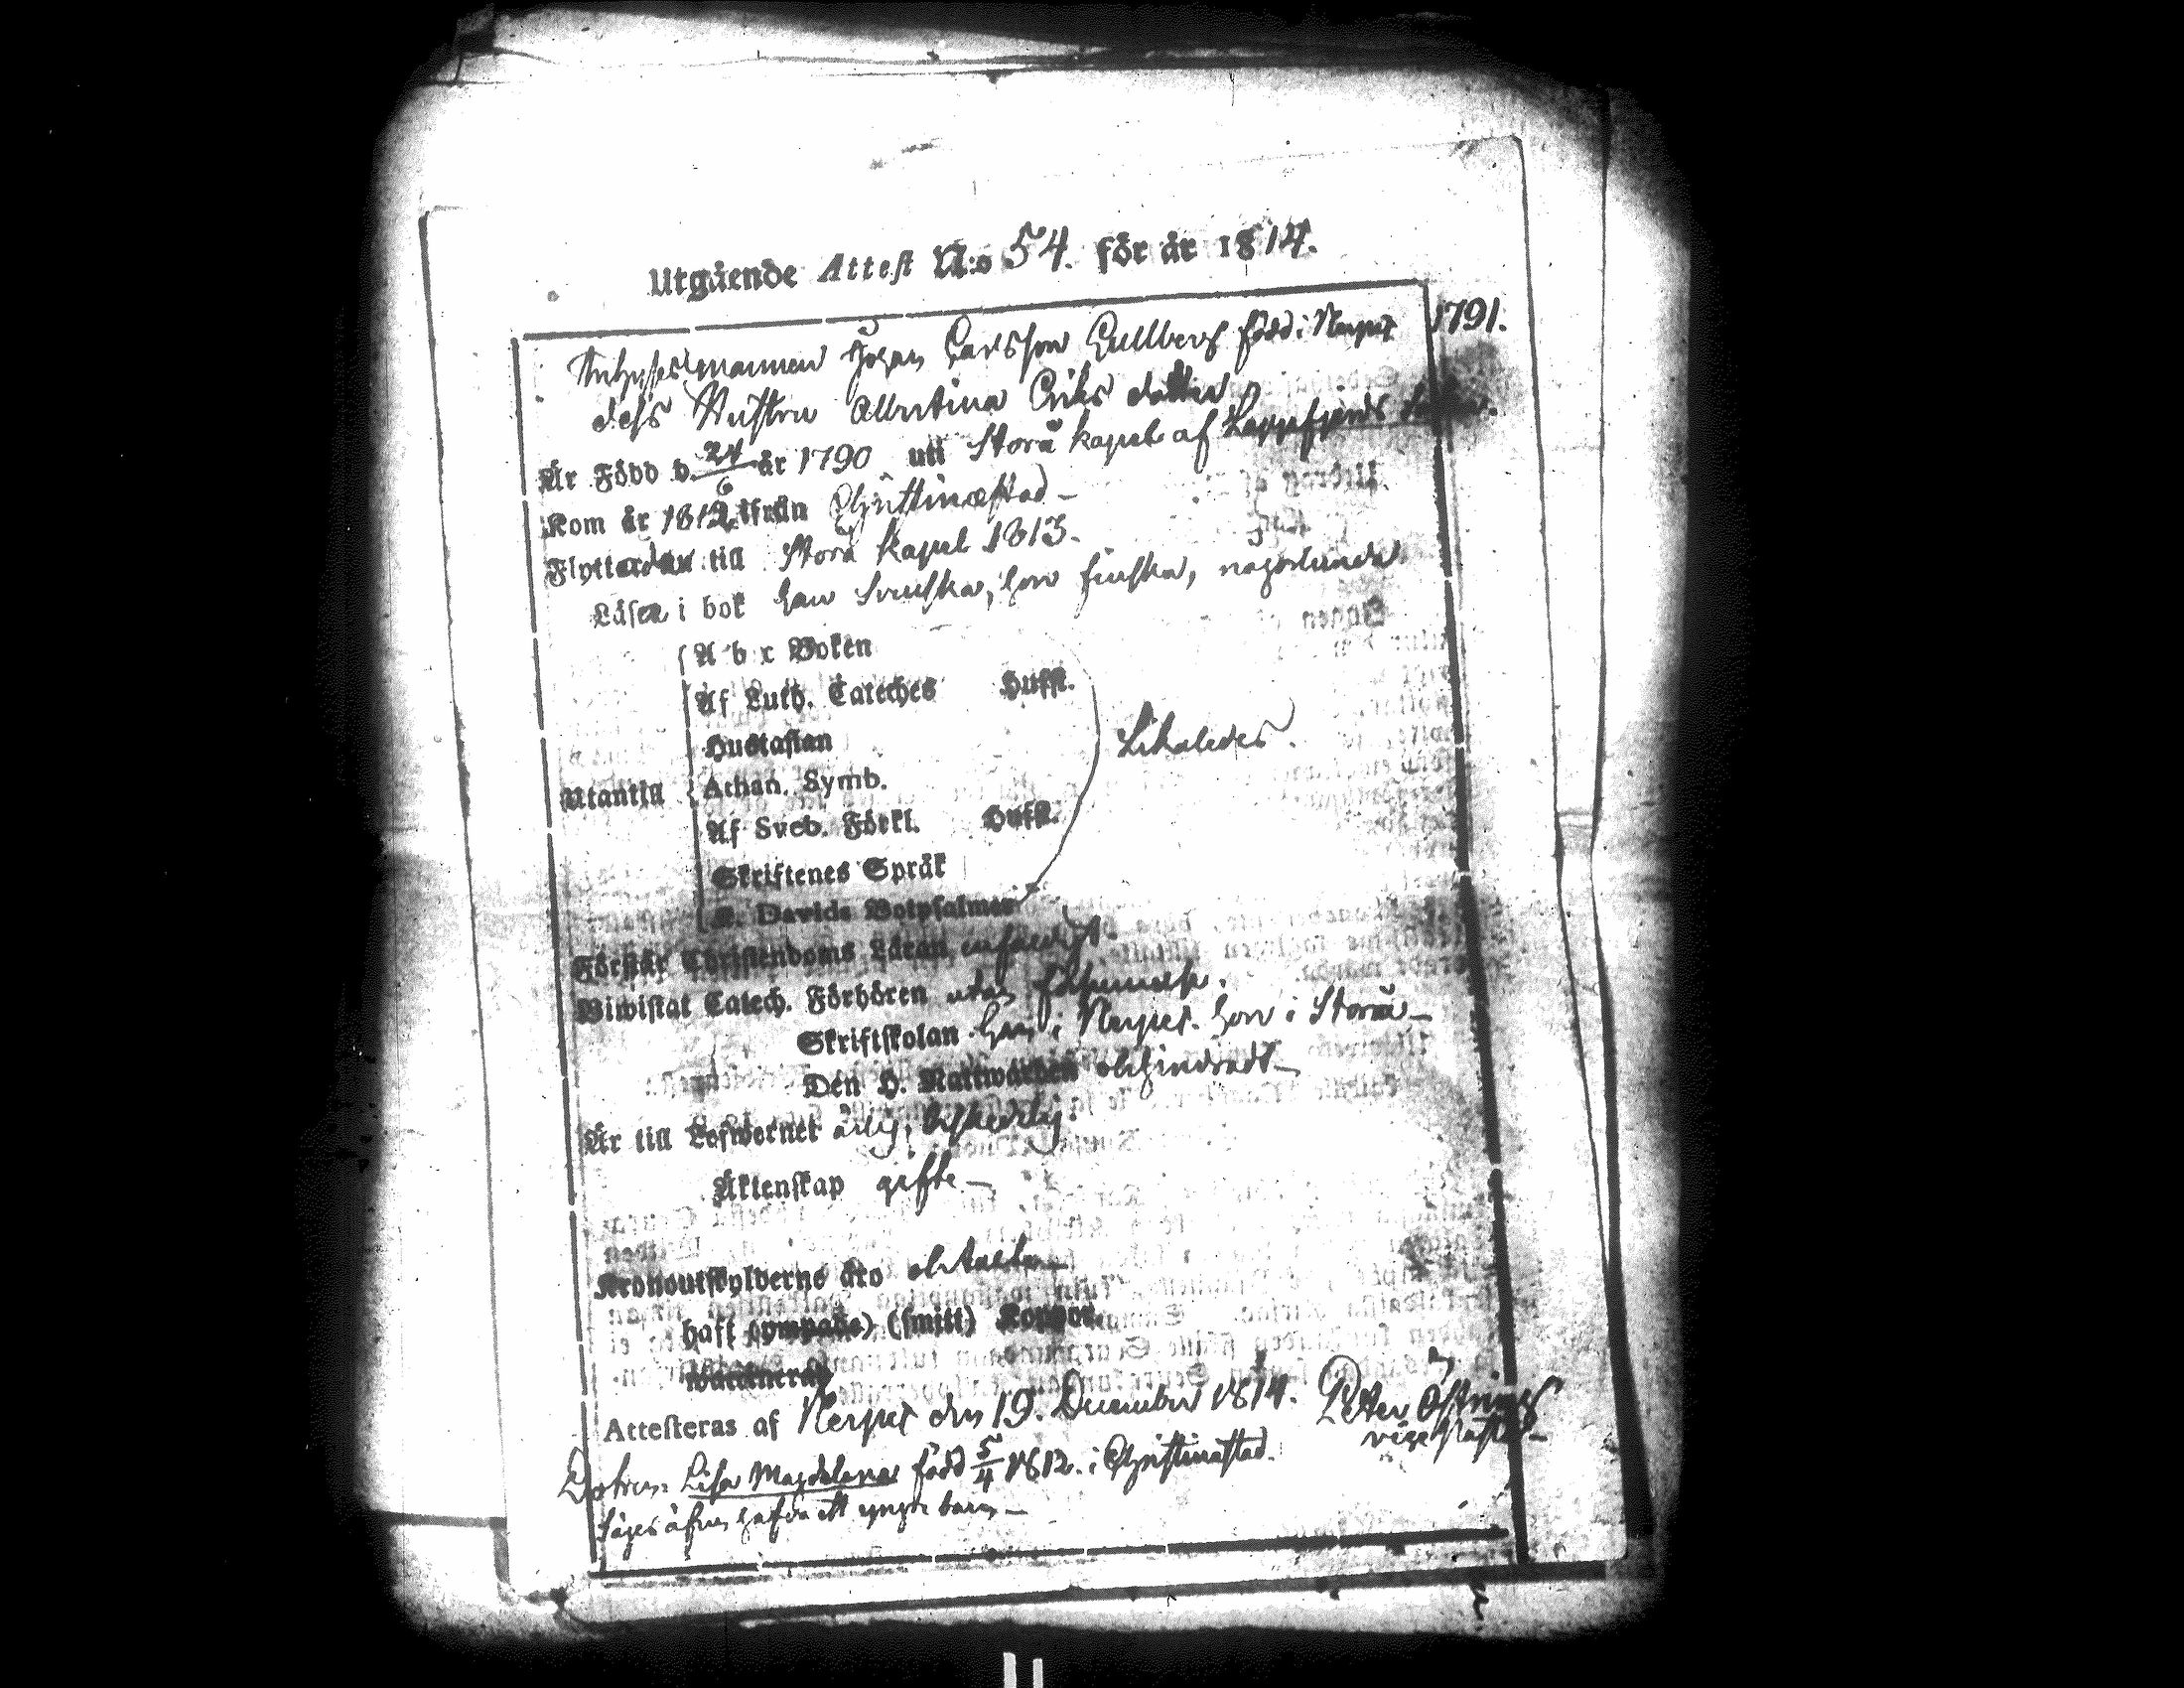 Utgående Attest N:o 54. för år 1814.
Inhysesmannen Johan Carlsson Gullberg född i Nerpes 1791.
dess Hustru Albertina Eriks dotter
Är Född d. 24/6 år 1790 uti Storå kapel af Lappfjerds
Kom år 1812 ifrån Christinæstad –
Flyttar till Storå Kapel 1813.
Läser i bok han Svenska, hon finska, någorlunda
A b c Boken
Af Luth. Cateches Hufst.
Hustaflan
Utantill Athan. Symb. Likaledes.
Af Sveb. Förkl. Hufst.
Skriftenes Språk
K. Davids Botpsalmer
Förstår Christendoms Läran enfaldigt.
Biwistat Catech. Förhören utan försummelse.
Skriftskolan han i Nerpes. hon i Storå –
Den H. Nattwarden obehindradt –
Är till Lefwernet ärlig, beskedlig.
Äktenskap gifte –
Kronoutskylderne äro obetalta –
haft (ympade) (smitt) Koppor.
Attesteras af Nerpes den 19. December 1814. Peter Östring
vice Pastor –
Dottren: Lisa Magdalena född 5/4 1812. i Christinæstad.
Säges äfven hafva ett yngre barn –